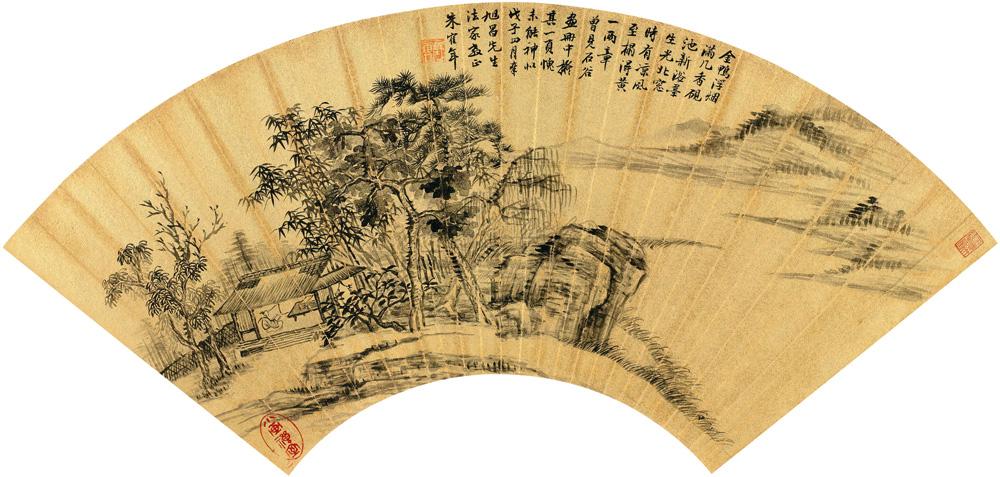 金鴨浮烟
滿几香硯
池新浴墨
生光北窓
時有凉風
至榻得黄
一兩章
曾見石谷
畫冊中
其一頁愧
未能神似
戊子四月奉
旭昌先生
法家教正
朱寉年